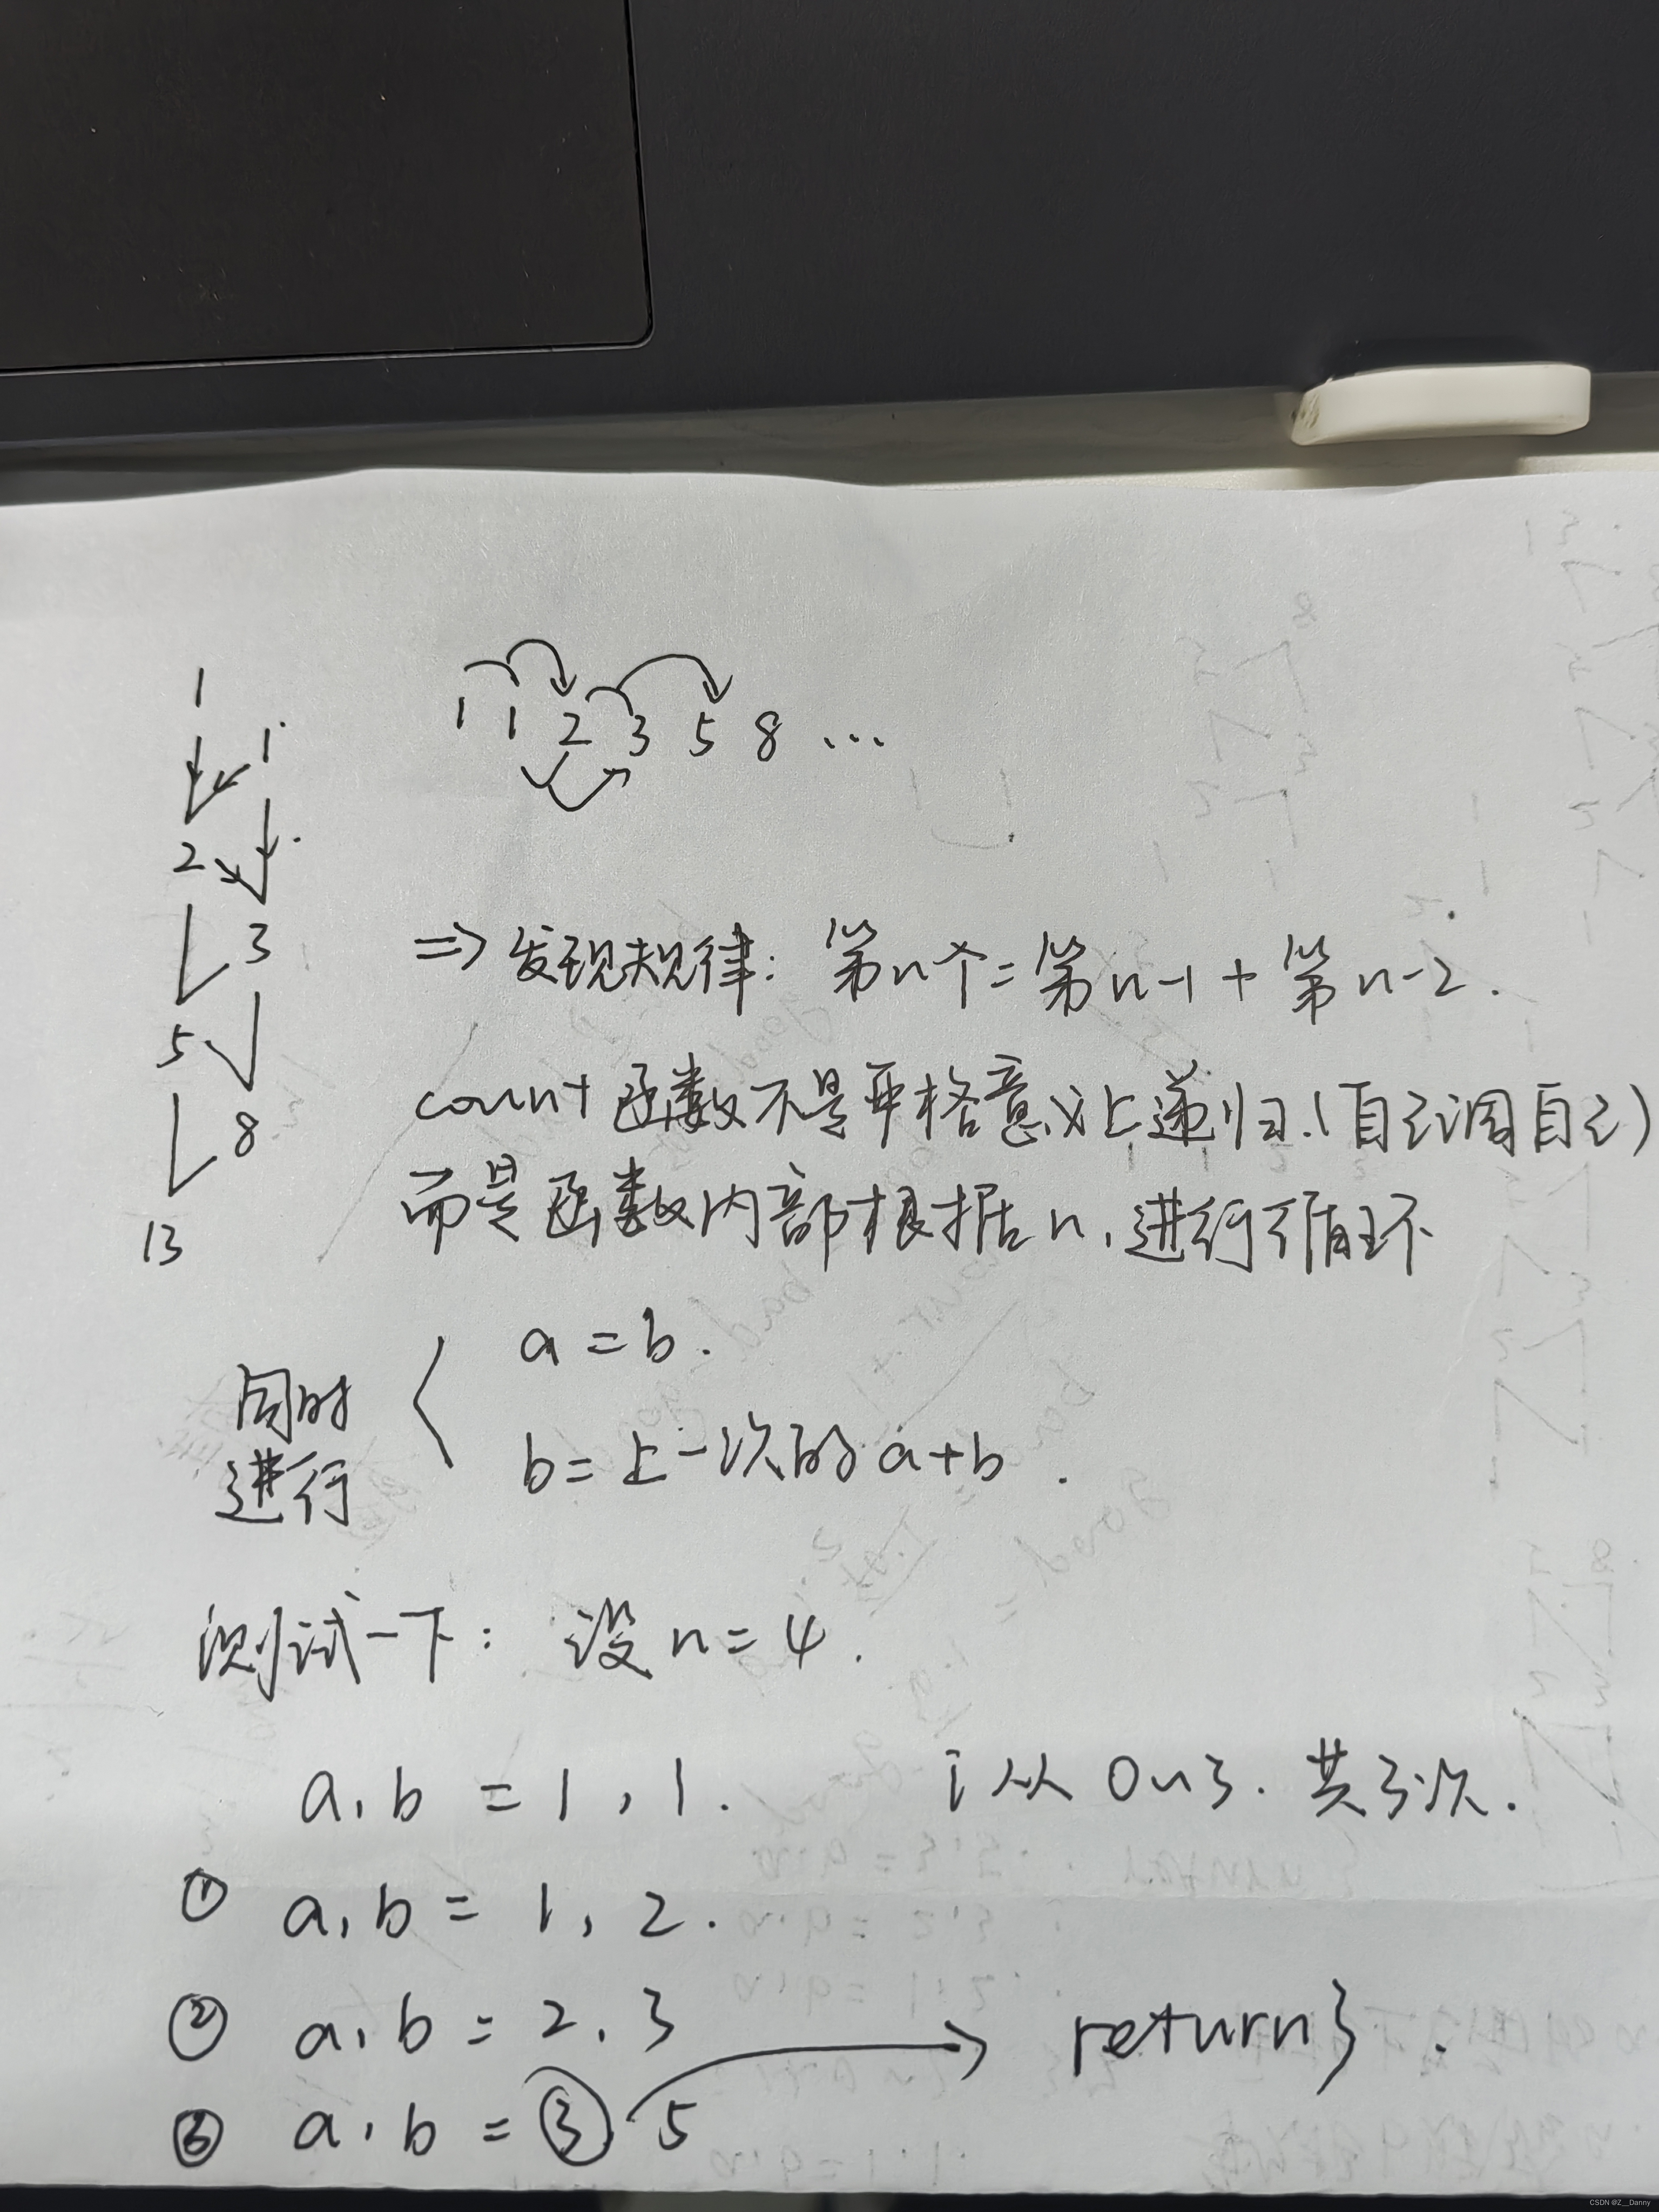 1
1
2
3
5
8
13
1 1 2 3 5 8 ...
=> 发现规律: 第n个=第n-1+第n-2.
count函数不是严格意义上递归.(自己调自己)
而是函数内部根据n,进行循环
同时
进行
a=b.
b=上一次的a+b.
测试一下: 设n=4.
a,b=1,1. i从0~3.共3次.
① a,b=1,2.
② a,b=2,3
return 3.
③ a,b=3 5
CSDN @Z__Danny